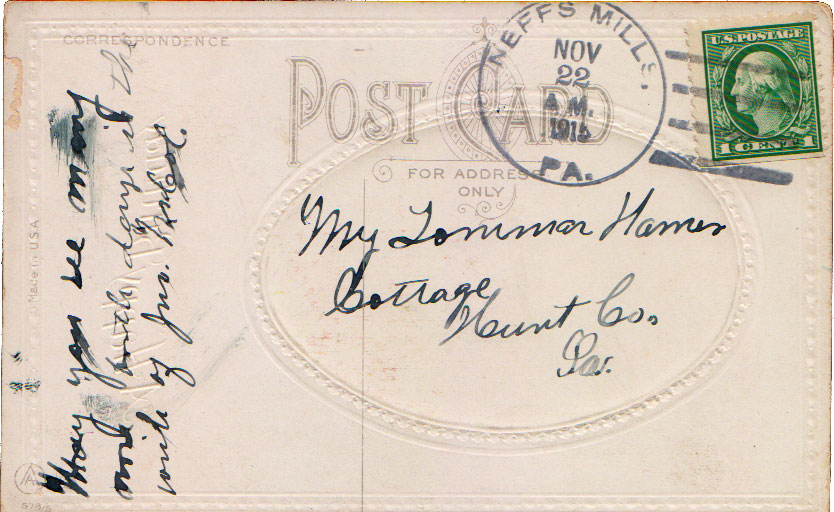 CORRESPONDENCE
POST CARD
FOR ADDRESS
ONLY
NEFFS MILLS,
NOV
22
A.M.
1915
PA.
U.S. POSTAGE
1 CENT 1
Made in USA
My Lommar Hamer
Cottage
Hunt Co.
Pa.
May you see many
more birth days is the
wish of Jno.